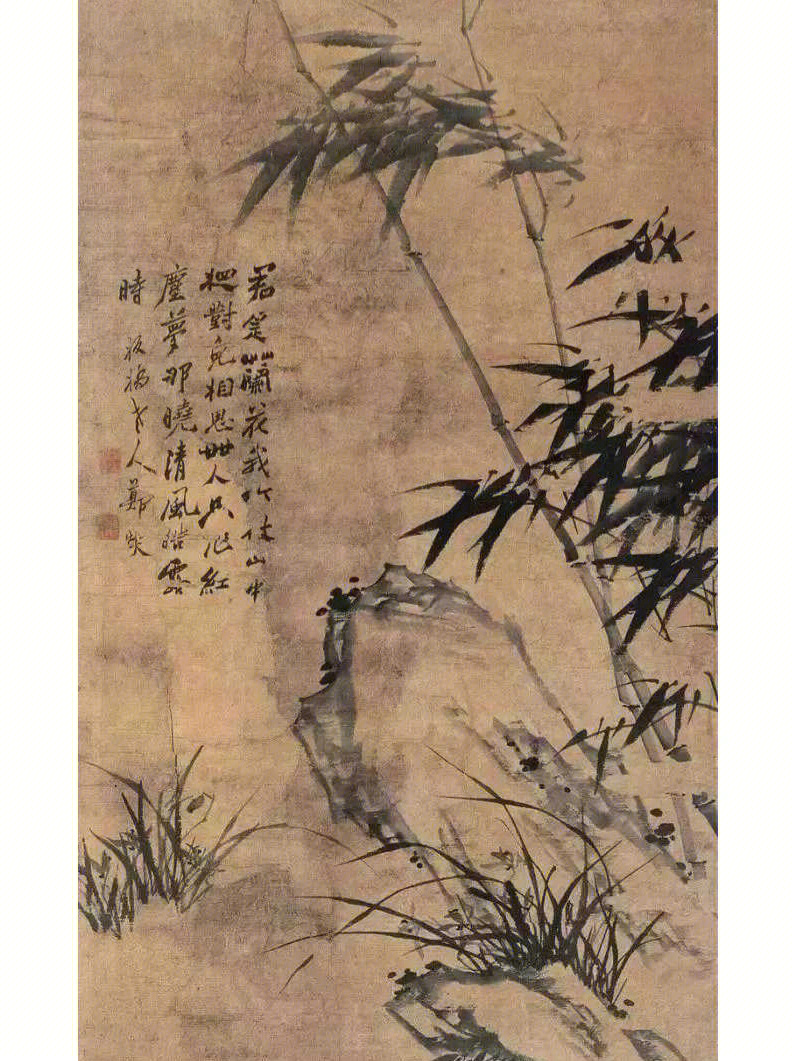 君是蘭花我竹枝山中
相對免相思世人只作紅
塵夢那曉清風皓露
時 板橋老人鄭燮